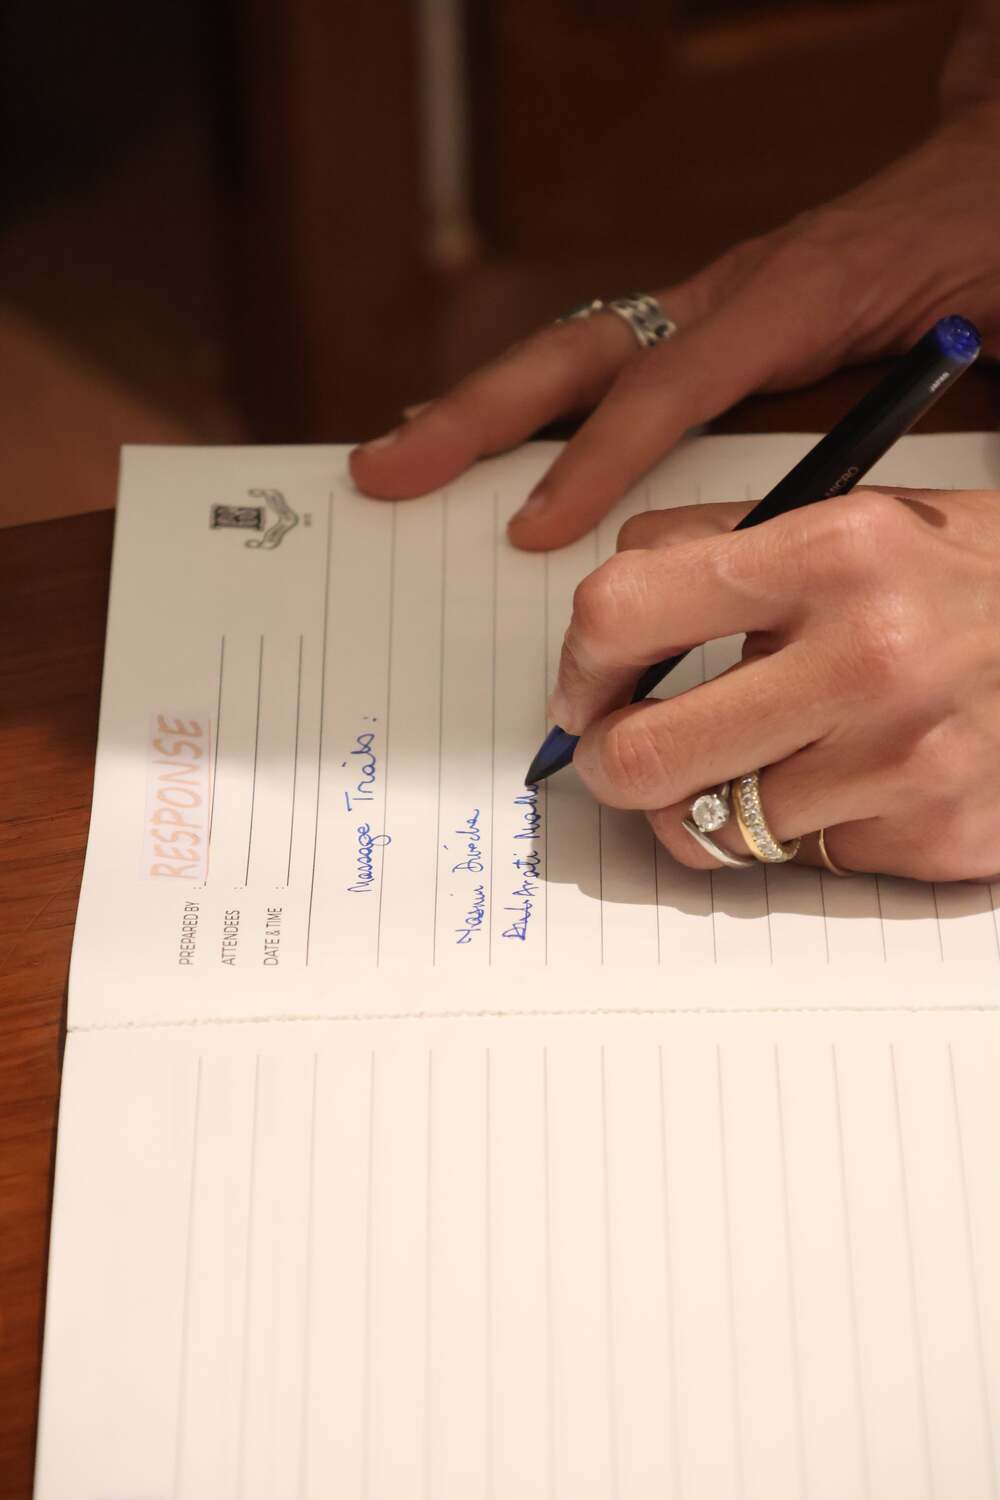 RESPONSE
PREPARED BY :
ATTENDEES :
DATE & TIME :
Massage Trials :
Yasmin Divecha
Arati
MICRO
JAPAN